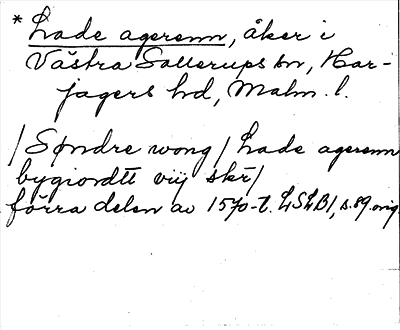 * Lade agerenn, åker i
Västra Sallerups sn, Har-
jagers hd, Malm. l.
/Søndre wong/ Lade agerenn
bygiordtt vij skr/
förra delen av 1570-t. LSLB1, s.89 orig.